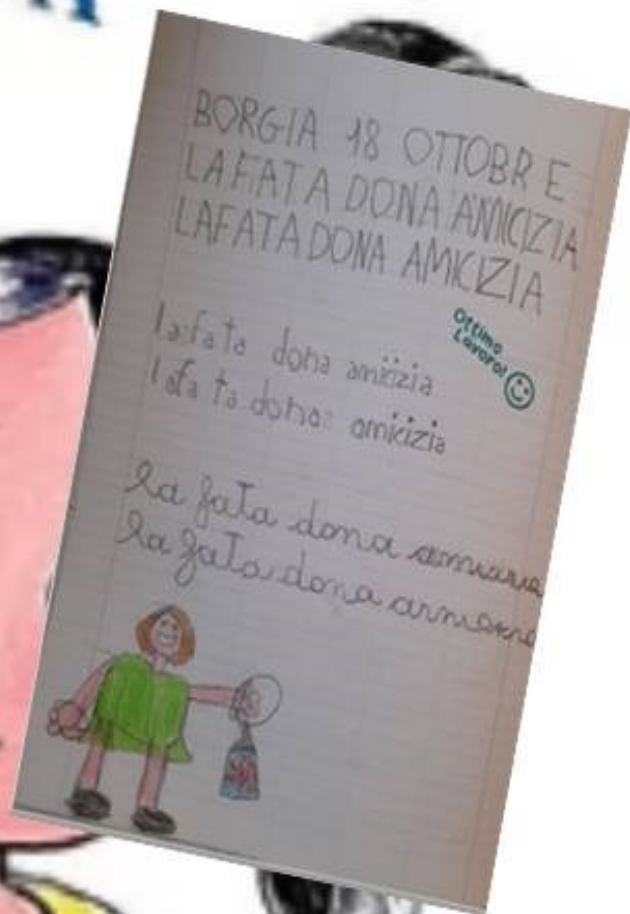 BORGIA 18 OTTOBRE
LA FATA DONA AMICIZIA
LA FATA DONA AMICIZIA
Ottimo
Lavoro!
la fata dona amicizia
la fata dona amicizia
la fata dona
la fata dona